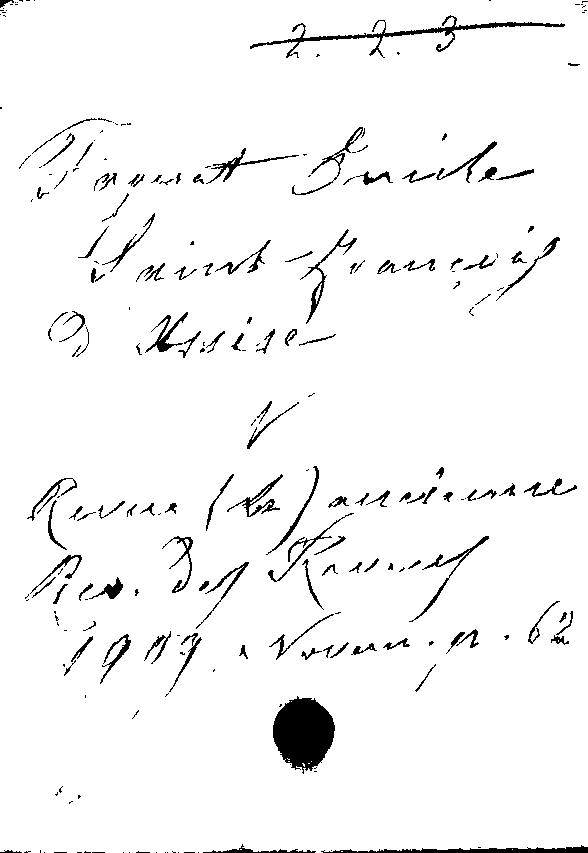 2. 2. 3
Faguet Emile
Saint François
d'Assise
V
Revue (la) ancienne
Rev. des Revues
1909. Novem. p. 62